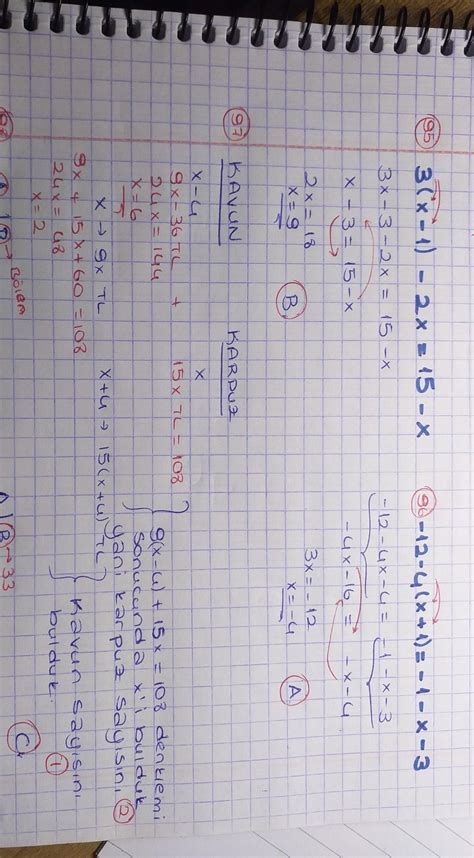 95 3(x-1) - 2x = 15 - x
3x - 3 - 2x = 15 - x
x - 3 = 15 - x
2x = 18
x = 9
B
96 -12 - 4(x+1) = -1 - x - 3
-12 - 4x - 4 = -1 - x - 3
-4x - 16 = -x - 4
3x = -12
x = -4
A
97 KAVUN KARPUZ
x-4 x
9x - 36 TL + 15x TL = 108
24x = 144
x = 6
9(x-4) + 15x = 108 denklemi
Sonucunda x'i bulduk
yani karpuz sayısını 2
x → 9x TL x+4 → 15(x+4) TL
9x + 15x + 60 = 108
24x = 48
x = 2
Kavun sayısını
bulduk. 1
C
Bölüm
B → 33